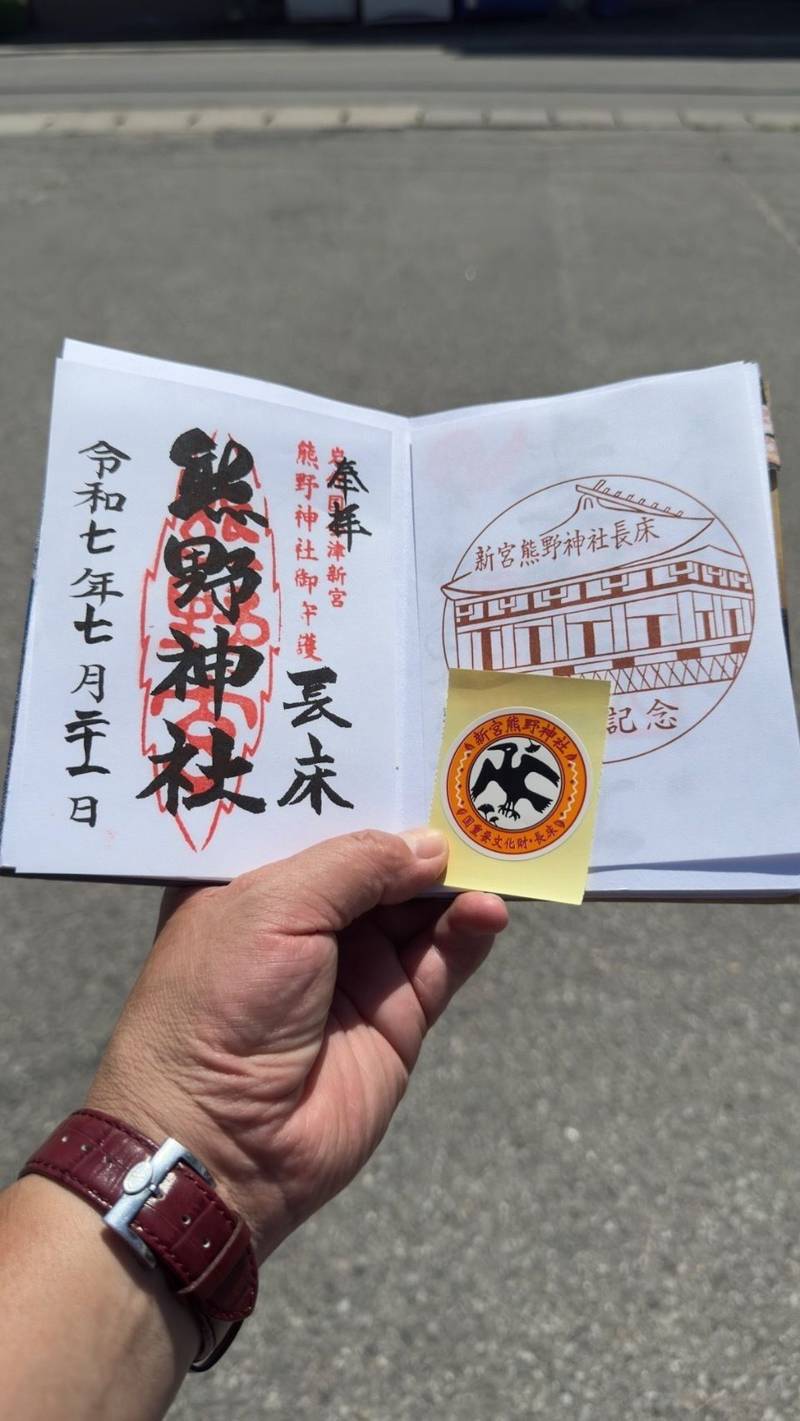 奉拝
津新宮
熊野神社御守護
長床
熊野神社
令和七年七月二十一日
新宮熊野神社長床
記念
新宮熊野神社
国重要文化財・長床